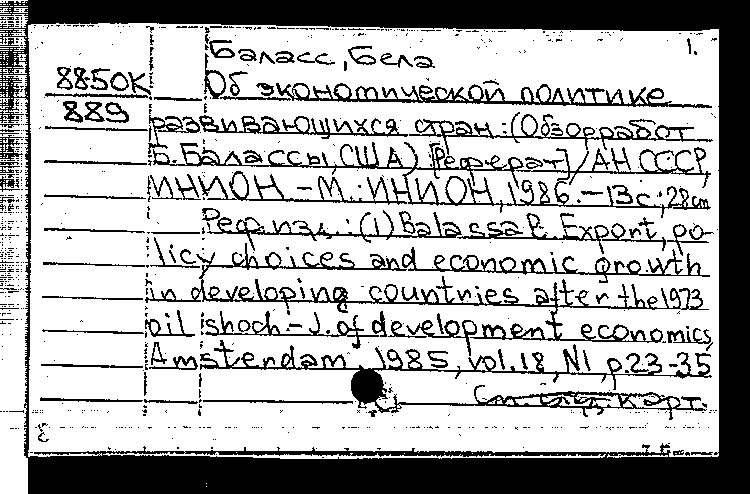 1.
Баласс, Бела
8850К Об экономической политике
889
развивающихся стран: (Обзор работ
Б. Балассы, США) [Реферат] / АН СССР,
ИНИОН. – М.: ИНИОН, 1986. – 13с.; 28cm
Реф. изд.: (1) Balassa B. Export, po-
licy choices and economic growth
in developing countries after the 1973
oil shoch. – J. of development economics,
Amsterdam, 1985, vol. 18, N1, p. 23-35
См. след. карт.